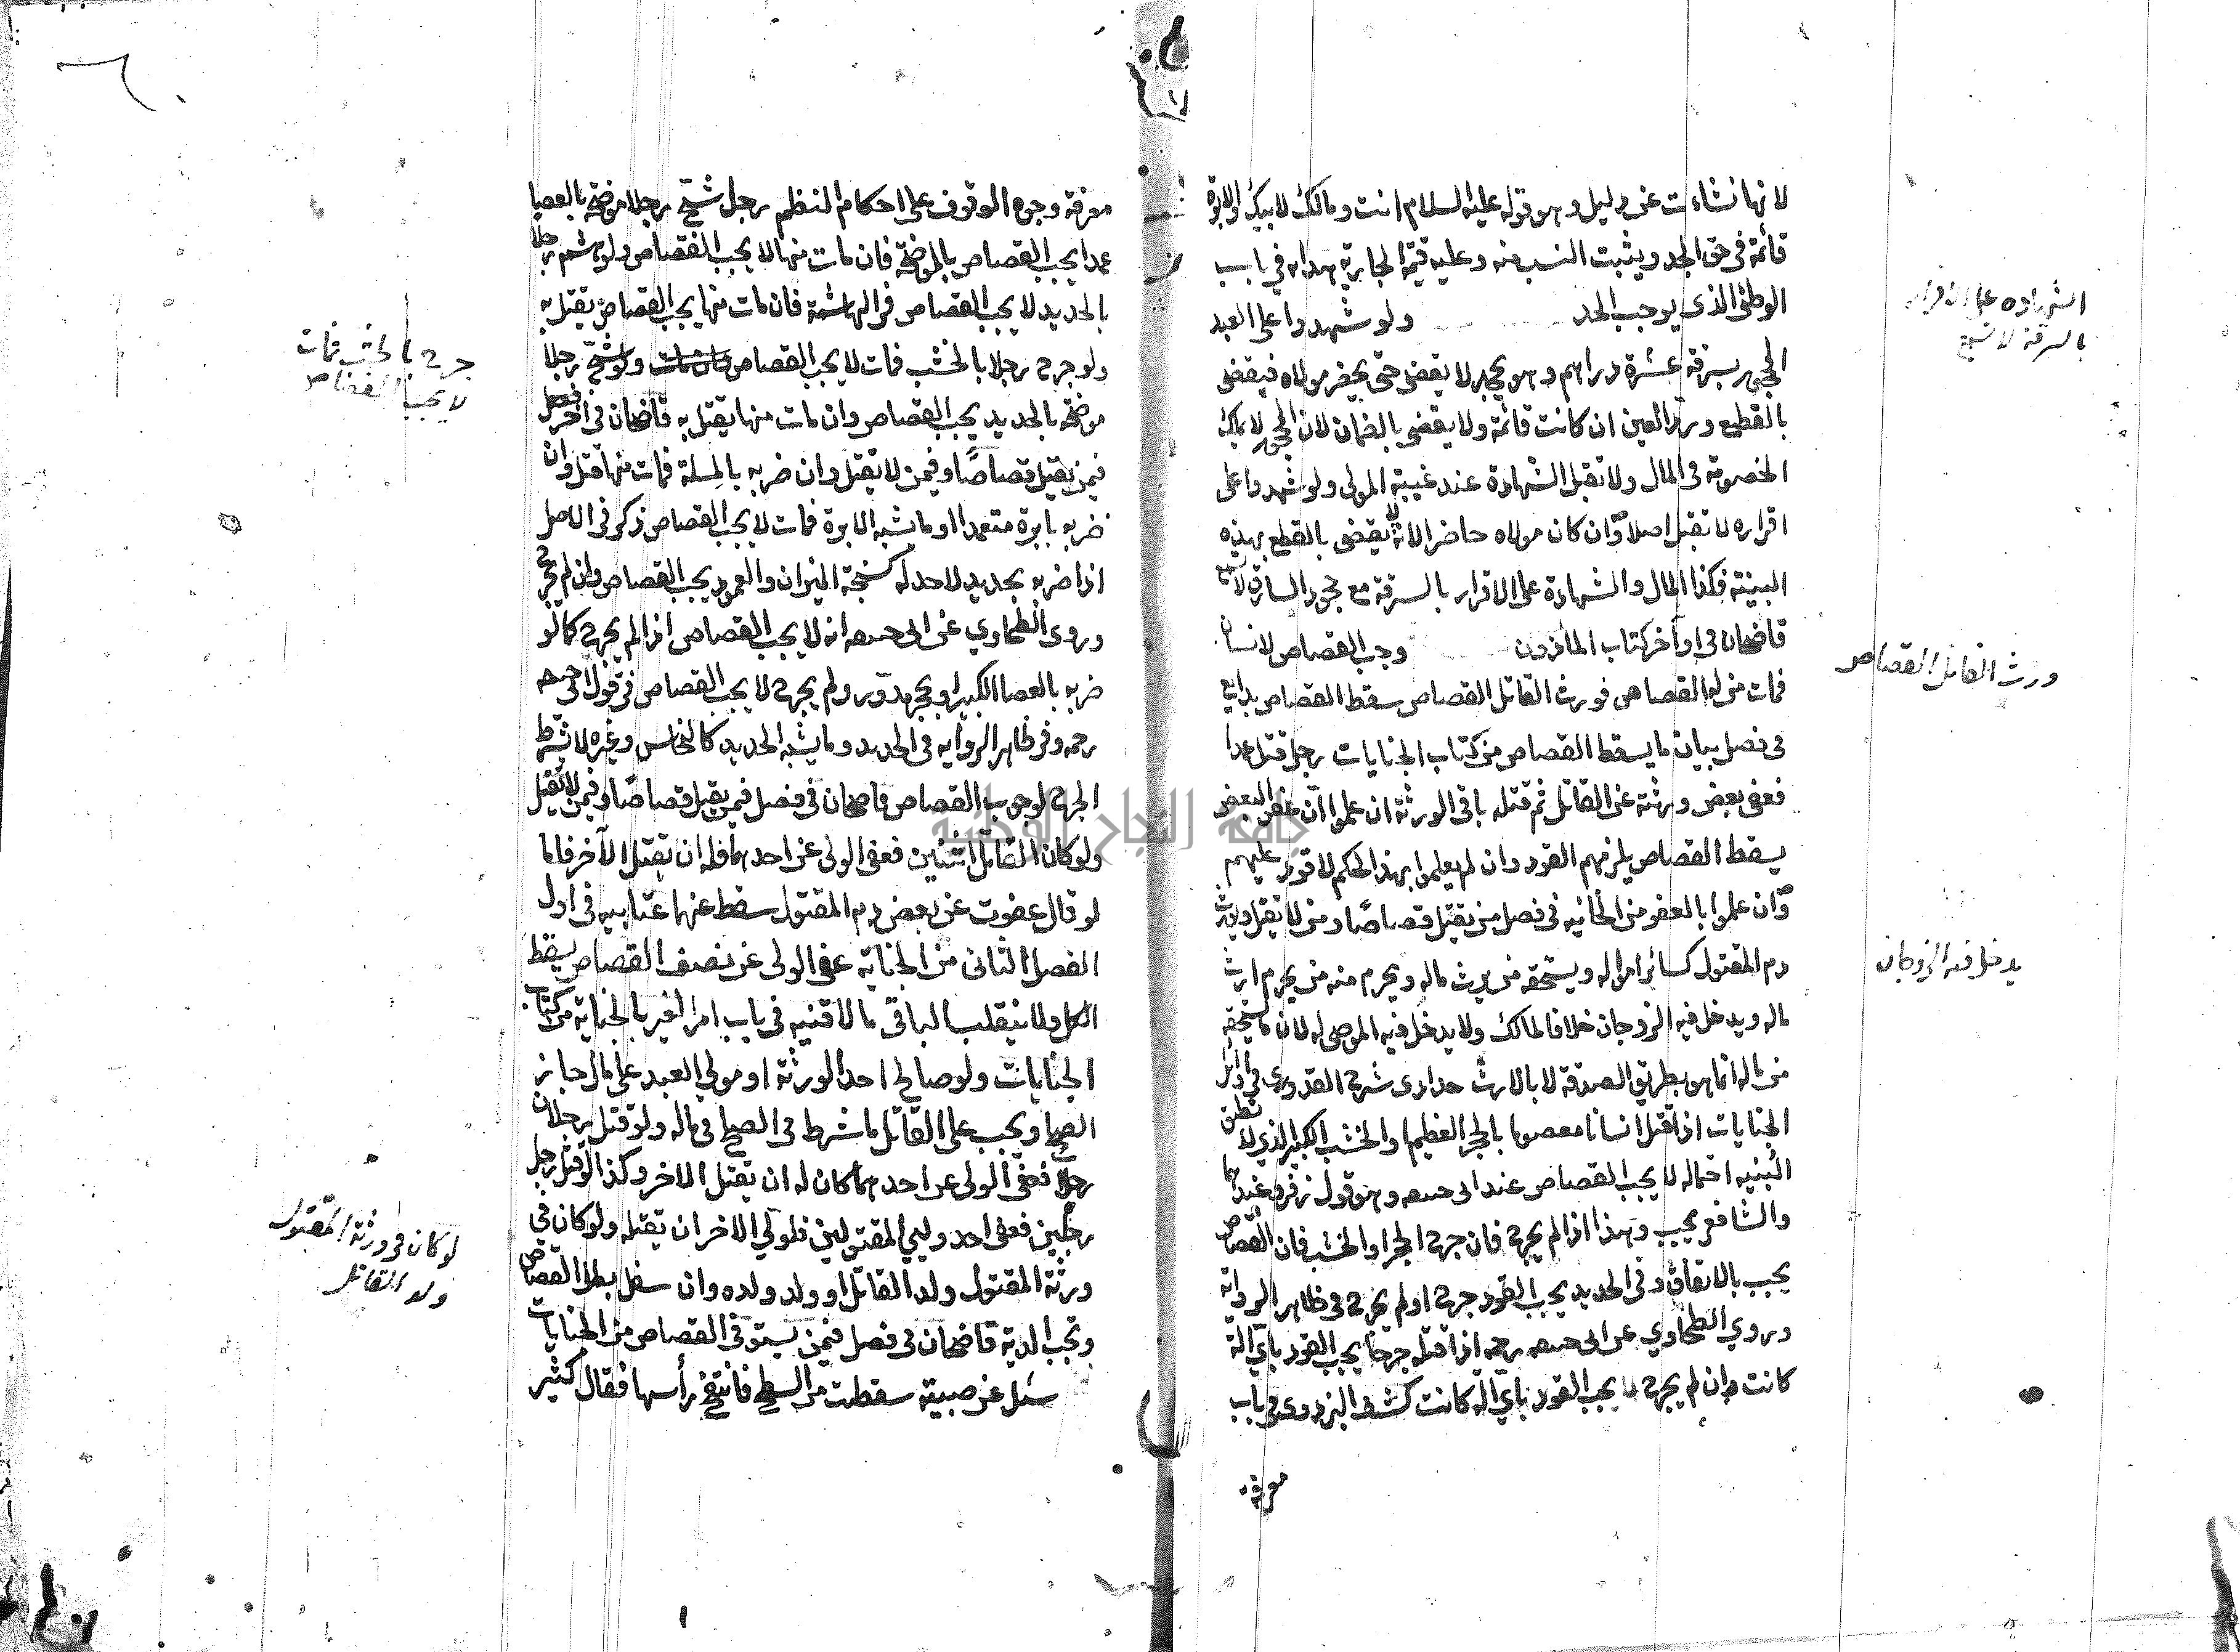 لانها نشاءت عن دليل وهو قوله عليه السلام انت ومالك لابيك والابوة
قائمة في حق الجد ويثبت النسب منه وعليه قيمة الجارية هدايه في باب
الوطئ الذي يوجب الحد ولو شهدوا على العبد
المحجور بسرقة عشرة دراهم وهو يجحد لا يقضى حتى يحضر مولاه فيقضى
بالقطع ورد العين ان كانت قائمة ولا يقضى بالضمان لان المحجور لا يملك
الخصومة في المال ولا تقبل الشهادة عند غيبة المولى ولو شهدوا على
اقراره لا تقبل اصلا وان كان مولاه حاضرا لانه لا يقضى بالقطع بهذه
البينة فكذا المال والشهادة على الاقرار بالسرقة مع جحود السارق لا تسمع
قاضيخان في اواخر كتاب المأذون وجب القصاص لانسان
فمات من له القصاص فورث القاتل القصاص سقط القصاص بدايع
في فصل بيان ما يسقط القصاص من كتاب الجنايات رجل قتل عمدا
فعفى بعض ورثته عن القاتل ثم قتله باقي الورثة ان علموا ان عفو البعض
يسقط القصاص يلزمهم القود وان لم يعلموا بهذا الحكم لا قود عليهم
وان علموا بالعفو من الخانيه في فصل من يقتل قصاصا ومن لا يقتل ويورث
دم المقتول كسائر امواله ويستحقه من يرث ماله ويحرم منه من يحرم ارث
ماله ويدخل فيه الزوجان خلافا لمالك ولا يدخل فيه الموصى له لان ما يستحقه
من ماله انما هو بطريق الصدقة لا بالارث حدادى شرح القدوري في اوائل
الجنايات اذا قتل انسانا معصوما بالحجر العظيم او الخشب الكبير الذي لا تطيق
البنيه احتماله لا يجب القصاص عند ابى حنيفه وهو قول زفر وعندهما
والشافعي يجب وهذا اذا لم يجرح فان جرح الحجر او الخشب فان القصاص
يجب بالاتفاق وفي الحديد يجب القود جرح او لم يجرح في ظاهر الرواية
وروي الطحاوي عن ابى حنيفه رحمه اذا قتله جرحا يجب القود باي آلة
كانت وان لم يجرح لا يجب القود باي آلة كانت كشف البزدوى في باب
معرفة
الشهاده على الاقرار
بالسرقة لا تسمع
ورث القاتل القصاص
يدخل فيه الزوجان
معرفة وجوه الوقوف على احكام النظم رجل شج رجلا موضحة بالعصا
عمدا يجب القصاص بالموضحة فان مات منها لا يجب القصاص ولو هشم رجلا
بالحديد لا يجب القصاص في الهاشمة فان مات منها يجب القصاص يقتل به
ولو جرح رجلا بالخشب فمات لا يجب القصاص ولو شج رجلا
موضحة بالحديد يجب القصاص وان مات منها يقتل به قاضيخان في اخر فصل
فيمن يقتل قصاصا وفيمن لا يقتل وان ضربه بالمسلة فمات منها قتل وان
ضربه بابرة متعمدا او ما شبه الابرة فمات لا يجب القصاص ذكر في الاصل
اذا ضربه بحديد لا حد له كسنجة الميزان والعمود يجب القصاص وان لم يجرح
وروى الطحاوي عن ابى حنيفه انه لا يجب القصاص اذا لم يجرح كما لو
ضربه بالعصا الكبير او بحجر مدور ولم يجرح لا يجب القصاص في قول ابي حنيفه
رحمه وفي ظاهر الروايه في الحديد وما يشبه الحديد كالنحاس وغيره لا يشترط
الجرح لوجوب القصاص قاضيخان في فصل فيمن يقتل قصاصا وفيمن لا يقتل
ولو كان القاتل اثنين فعفى الولى عن احدهما فله ان يقتل الآخر فاما
لو قال عفوت عن بعض دم المقتول سقط عنهما عتابيه في اول
الفصل الثاني من الجناية عفى الولى عن نصف القصاص يسقط
الكل ولا ينقلب الباقي مالا قنيه في باب امر الغير بالجناية من كتاب
الجنايات ولو صالح احد الورثة او مولي العبد على مال جاز
الصلح ويجب على القاتل ما شرط في الصلح في ماله ولو قتل رجلان
رجلا فعفى الولى عن احدهما كان له ان يقتل الاخر وكذا لو قتل رجل
رجلين فعفى احد وليي المقتولين فلولي الاخر ان يقتله ولو كان في
ورثة المقتول ولد القاتل او ولد ولده وان سفل بطل القصاص
وتجب الدية قاضيخان في فصل فيمن يستوفى القصاص من الجنايات
سئل عن صبية سقطت من السطح فانتفخ رأسها فقال كثير
جرح بالخشب فمات
لا يجب القصاص
لو كان في ورثة المقتول
ولد القاتل
٦
جامعة النجاح الوطنية